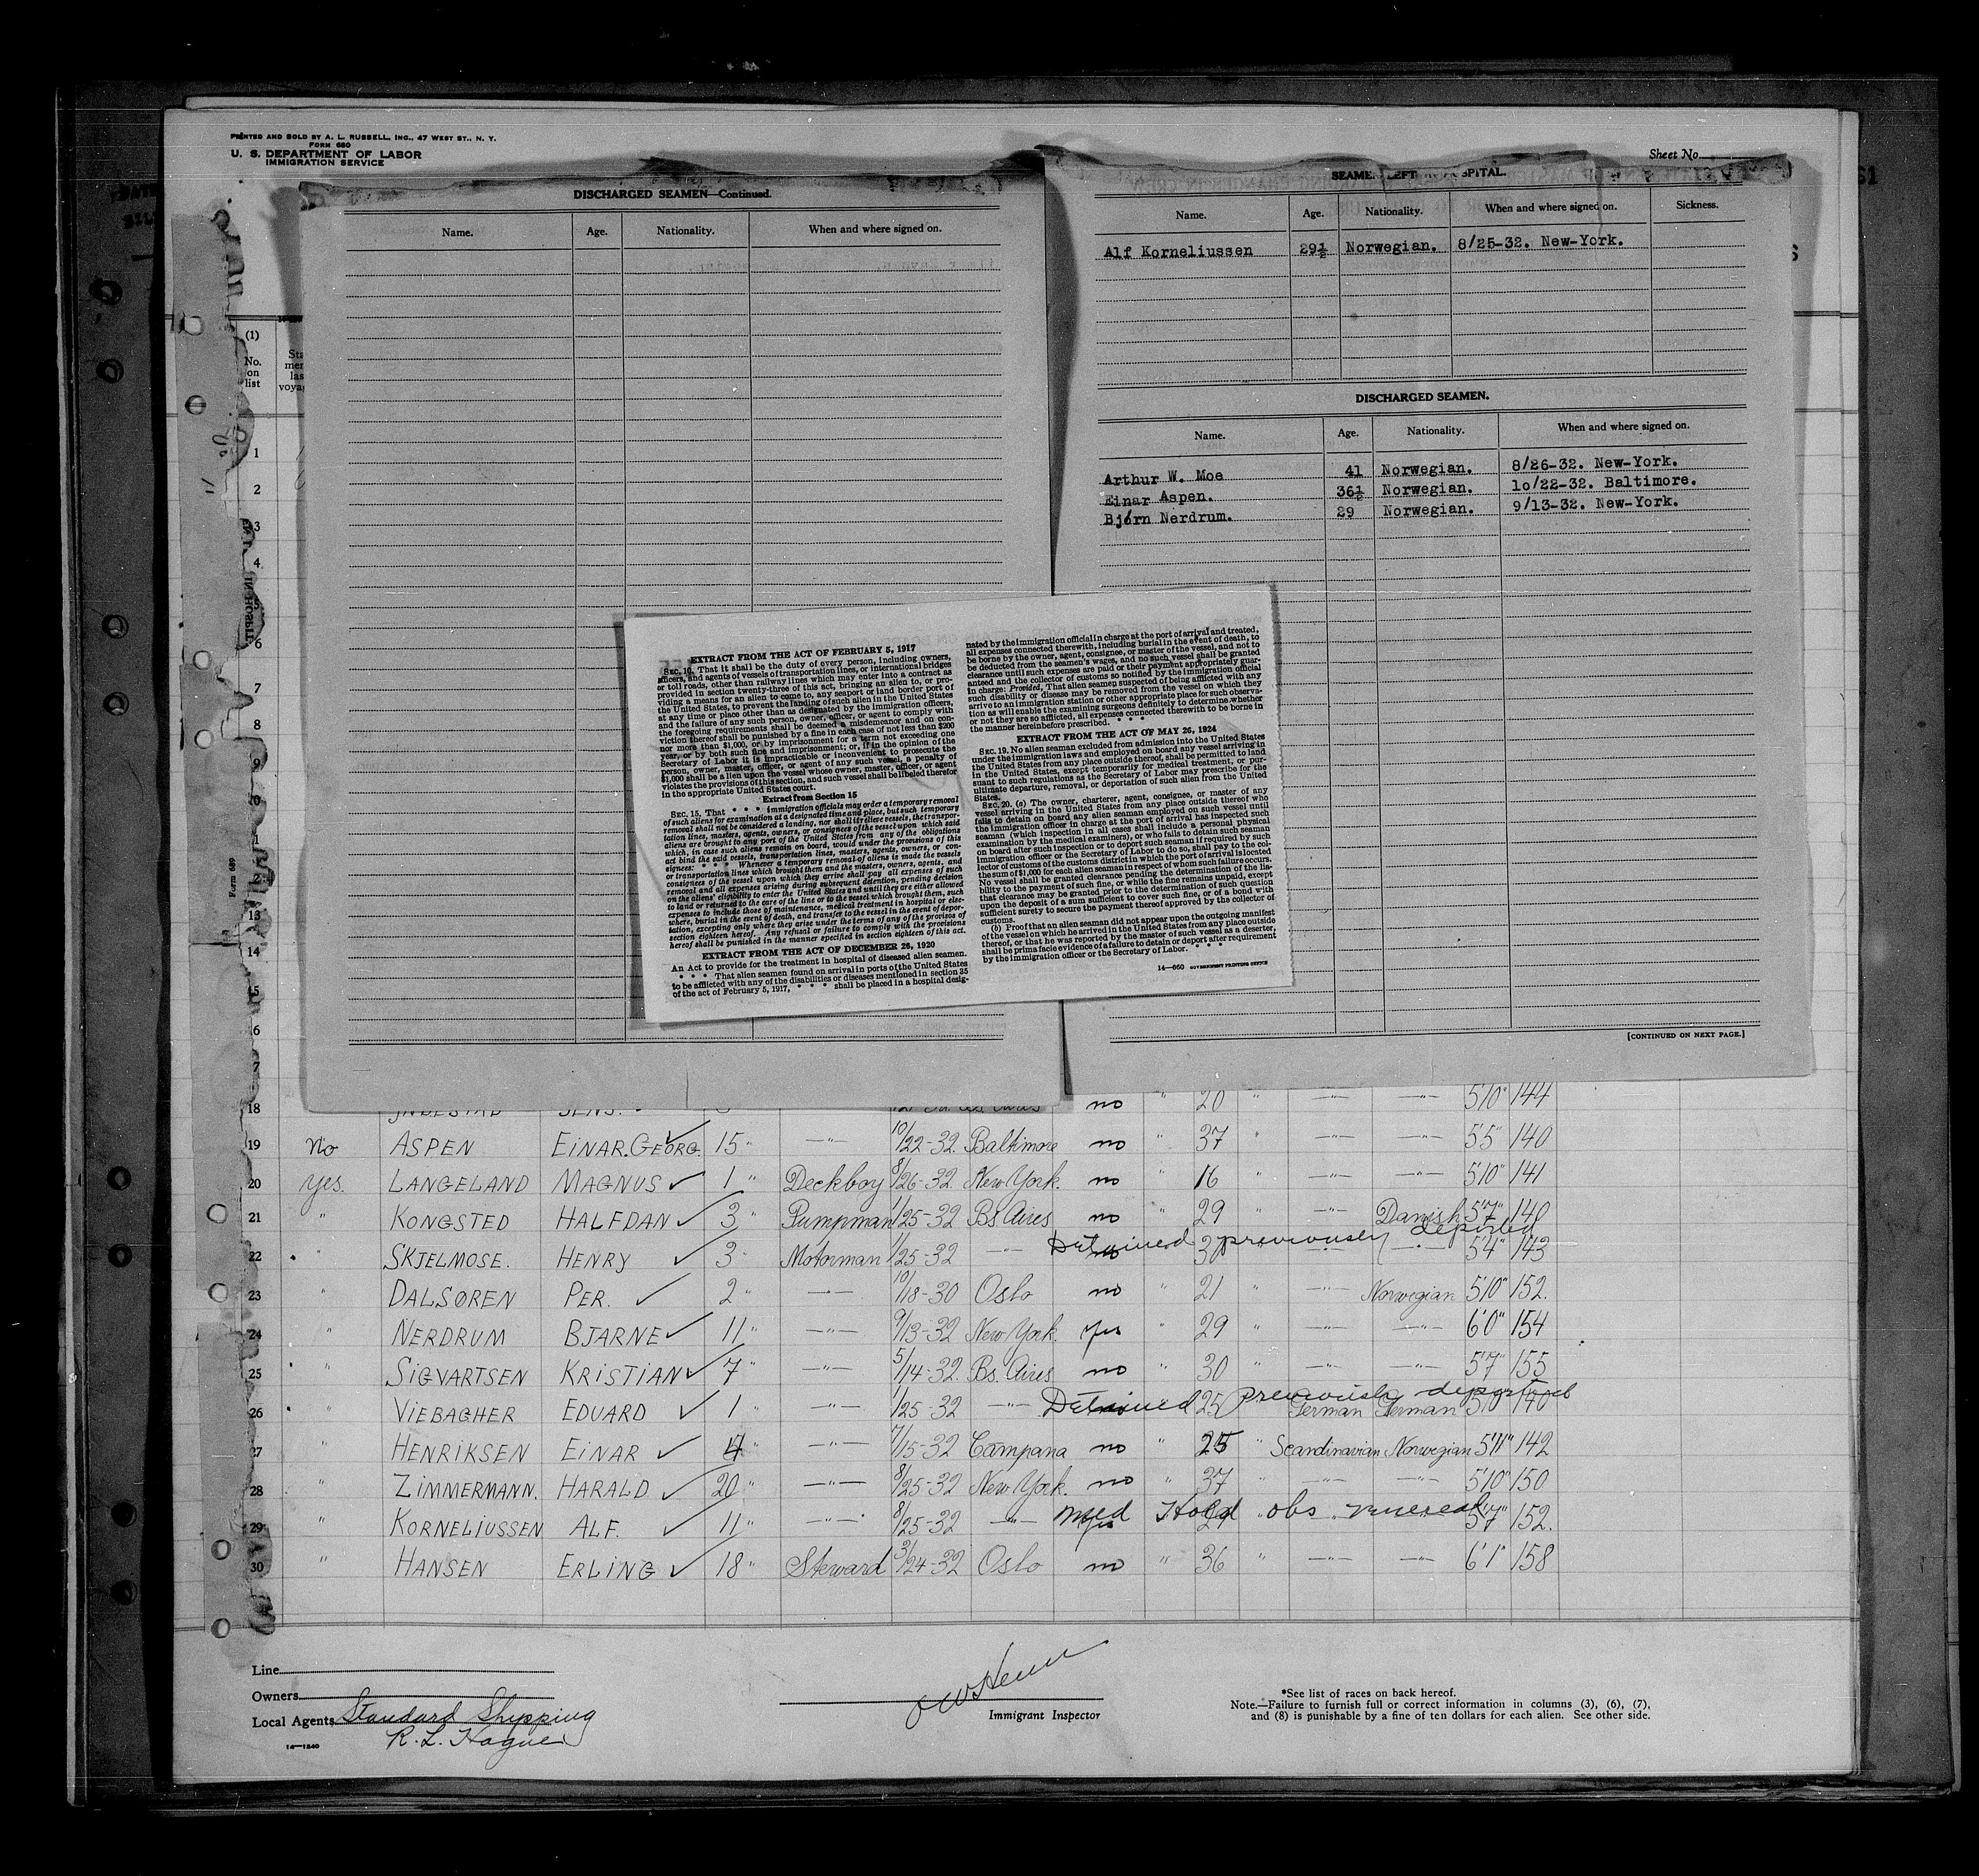 PRINTED AND SOLD BY A. L. RUSSELL, INC., 47 WEST ST., N. Y.
FORM 680
U. S. DEPARTMENT OF LABOR
IMMIGRATION SERVICE
Sheet No.
DISCHARGED SEAMEN—Continued.
Name. Age. Nationality. When and where signed on.
Name. Age. Nationality. When and where signed on. Sickness.
Alf Korneliussen 29½ Norwegian. 8/25-32. New-York.
DISCHARGED SEAMEN.
Name. Age. Nationality. When and where signed on.
Arthur W. Moe 41 Norwegian. 8/26-32. New-York.
Einar Aspen. 36½ Norwegian. 10/22-32. Baltimore.
Bjørn Nerdrum. 29 Norwegian. 9/13-32. New-York.
[CONTINUED ON NEXT PAGE.]
EXTRACT FROM THE ACT OF FEBRUARY 5, 1917
SEC. 10. That it shall be the duty of every person, including owners,
officers, and agents of vessels of transportation lines, or international bridges
or toll roads, other than railway lines which may enter into a contract as
provided in section twenty-three of this act, bringing an alien to, or pro-
viding a means for an alien to come to, any seaport or land border port of
the United States, to prevent the landing of such alien in the United States
at any time or place other than as designated by the immigration officers,
and the failure of any such person, owner, officer, or agent to comply with
the foregoing requirements shall be deemed a misdemeanor and on con-
viction thereof shall be punished by a fine in each case of not less than $200
nor more than $1,000, or by imprisonment for a term not exceeding one
year, or by both such fine and imprisonment; or, if in the opinion of the
Secretary of Labor it is impracticable or inconvenient to prosecute the
person, owner, master, officer, or agent of any such vessel, a penalty of
$1,000 shall be a lien upon the vessel whose owner, master, officer, or agent
violates the provisions of this section, and such vessel shall be libeled therefor
in the appropriate United States court.
Extract from Section 15
SEC. 15. That * * * immigration officials may order a temporary removal
of such aliens for examination at a designated time and place, but such temporary
removal shall not be considered a landing, nor shall it relieve vessels, the transpor-
tation lines, masters, agents, owners, or consignees of the vessel upon which said
aliens are brought to any port of the United States from any of the obligations
which, in case such aliens remain on board, would under the provisions of this
act bind the said vessels, transportation lines, masters, agents, owners, or con-
signees: * * * Whenever a temporary removal of aliens is made the vessels
or transportation lines which brought them and the masters, owners, agents, and
consignees of the vessel upon which they arrive shall pay all expenses of such
removal and all expenses arising during subsequent detention, pending decision
on the aliens' eligibility to enter the United States and until they are either allowed
to land or returned to the care of the line or to the vessel which brought them, such
expenses to include those of maintenance, medical treatment in hospital or else-
where, burial in the event of death, and transfer to the vessel in the event of depor-
tation, excepting only where they arise under the terms of any of the provisos of
section eighteen hereof. Any refusal or failure to comply with the provisions
hereof shall be punished in the manner specified in section eighteen of this act.
EXTRACT FROM THE ACT OF DECEMBER 26, 1920
An Act to provide for the treatment in hospital of diseased alien seamen.
* * * That alien seamen found on arrival in ports of the United States
to be afflicted with any of the disabilities or diseases mentioned in section 35
of the act of February 5, 1917, * * * shall be placed in a hospital desig-
nated by the immigration official in charge at the port of arrival and treated,
all expenses connected therewith, including burial in the event of death, to
be borne by the owner, agent, consignee, or master of the vessel, and not to
be deducted from the seamen's wages, and no such vessel shall be granted
clearance until such expenses are paid or their payment appropriately guar-
anteed and the collector of customs so notified by the immigration official
in charge: Provided, That alien seamen suspected of being afflicted with any
such disability or disease may be removed from the vessel on which they
arrive to an immigration station or other appropriate place for such observa-
tion as will enable the examining surgeons definitely to determine whether
or not they are so afflicted, all expenses connected therewith to be borne in
the manner hereinbefore prescribed. * * * *
EXTRACT FROM THE ACT OF MAY 26, 1924
SEC. 19. No alien seaman excluded from admission into the United States
under the immigration laws and employed on board any vessel arriving in
the United States from any place outside thereof, shall be permitted to land
in the United States, except temporarily for medical treatment, or pur-
suant to such regulations as the Secretary of Labor may prescribe for the
ultimate departure, removal, or deportation of such alien from the United
States.
SEC. 20. (a) The owner, charterer, agent, consignee, or master of any
vessel arriving in the United States from any place outside thereof who
fails to detain on board any alien seaman employed on such vessel until
the immigration officer in charge at the port of arrival has inspected such
seaman (which inspection in all cases shall include a personal physical
examination by the medical examiners), or who fails to detain such seaman
on board after such inspection or to deport such seaman if required by such
immigration officer or the Secretary of Labor to do so, shall pay to the col-
lector of customs of the customs district in which the port of arrival is located
the sum of $1,000 for each alien seaman in respect of whom such failure occurs.
No vessel shall be granted clearance pending the determination of the lia-
bility to the payment of such fine, or while the fine remains unpaid, except
that clearance may be granted prior to the determination of such question
upon the deposit of a sum sufficient to cover such fine, or of a bond with
sufficient surety to secure the payment thereof approved by the collector of
customs.
(b) Proof that an alien seaman did not appear upon the outgoing manifest
of the vessel on which he arrived in the United States from any place outside
thereof, or that he was reported by the master of such vessel as a deserter,
shall be prima facie evidence of a failure to detain or deport after requirement
by the immigration officer or the Secretary of Labor. * * *
14—660 GOVERNMENT PRINTING OFFICE
(1)
No. on list
1
2
3
4
6
7
8
9
Form 689
13
14
18 no " 20 " —"— —"— 5'10" 144
19 No ASPEN EINAR.GEORG. 15 " —"— 10/22-32. Baltimore no " 37 " —"— —"— 5'5" 140
20 yes. LANGELAND MAGNUS ✓ 1 " Deckboy 8/26-32 New York. no " 16 " —"— —"— 5'10" 141
21 " KONGSTED HALFDAN ✓ 3 " Pumpman 1/25-32 Bs Aires no " 29 " —"— Danish 5'7" 140
22 " SKJELMOSE. HENRY ✓ 3 " Motorman 1/25-32 —"— Detained previously deported 30 —"— —"— 5'4" 143
23 " DALSØREN PER. ✓ 2 " —"— 10/18-30 Oslo no " 21 " —"— Norwegian 5'10" 152.
24 " NERDRUM BJARNE ✓ 11 " —"— 9/13-32 New York. Yes " 29 " —"— —"— 6'0" 154
25 " SIGVARTSEN KRISTIAN ✓ 7 " —"— 5/14-32. Bs. Aires no " 30 " —"— —"— 5'7" 155
26 " VIEBAGHER EDUARD ✓ 1 " —"— 1/25-32 —"— Detained 25 previously deported German German 5'10" 140
27 " HENRIKSEN EINAR ✓ 4 " —"— 7/15-32 Campana no " 25 " Scandinavian Norwegian 5'11" 142
28 " ZIMMERMANN. HARALD ✓ 20 " —"— 8/25-32 New York. no " 37 " —"— —"— 5'10" 150
29 " KORNELIUSSEN ALF. ✓ 11 " —"— 8/25-32 —"— Med Hold obs venereal yes 29 5'7" 152.
30 " HANSEN ERLING ✓ 18 " Steward 3/24-32 Oslo no " 36 " —"— —"— 6'1" 158
Line
Owners
Local Agents Standard Shipping
R. L. Hague
14—1240
Immigrant Inspector
*See list of races on back hereof.
Note.—Failure to furnish full or correct information in columns (3), (6), (7),
and (8) is punishable by a fine of ten dollars for each alien. See other side.